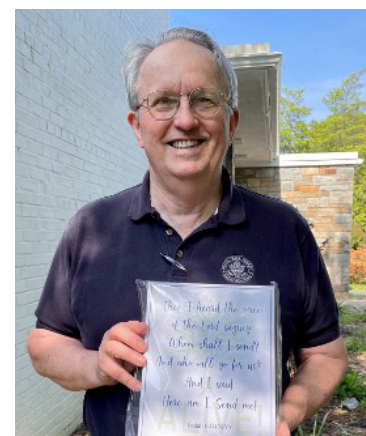 Then I heard the voice
of the Lord saying
Whom shall I send?
And who will go for us?
And I said
Here am I. Send me!